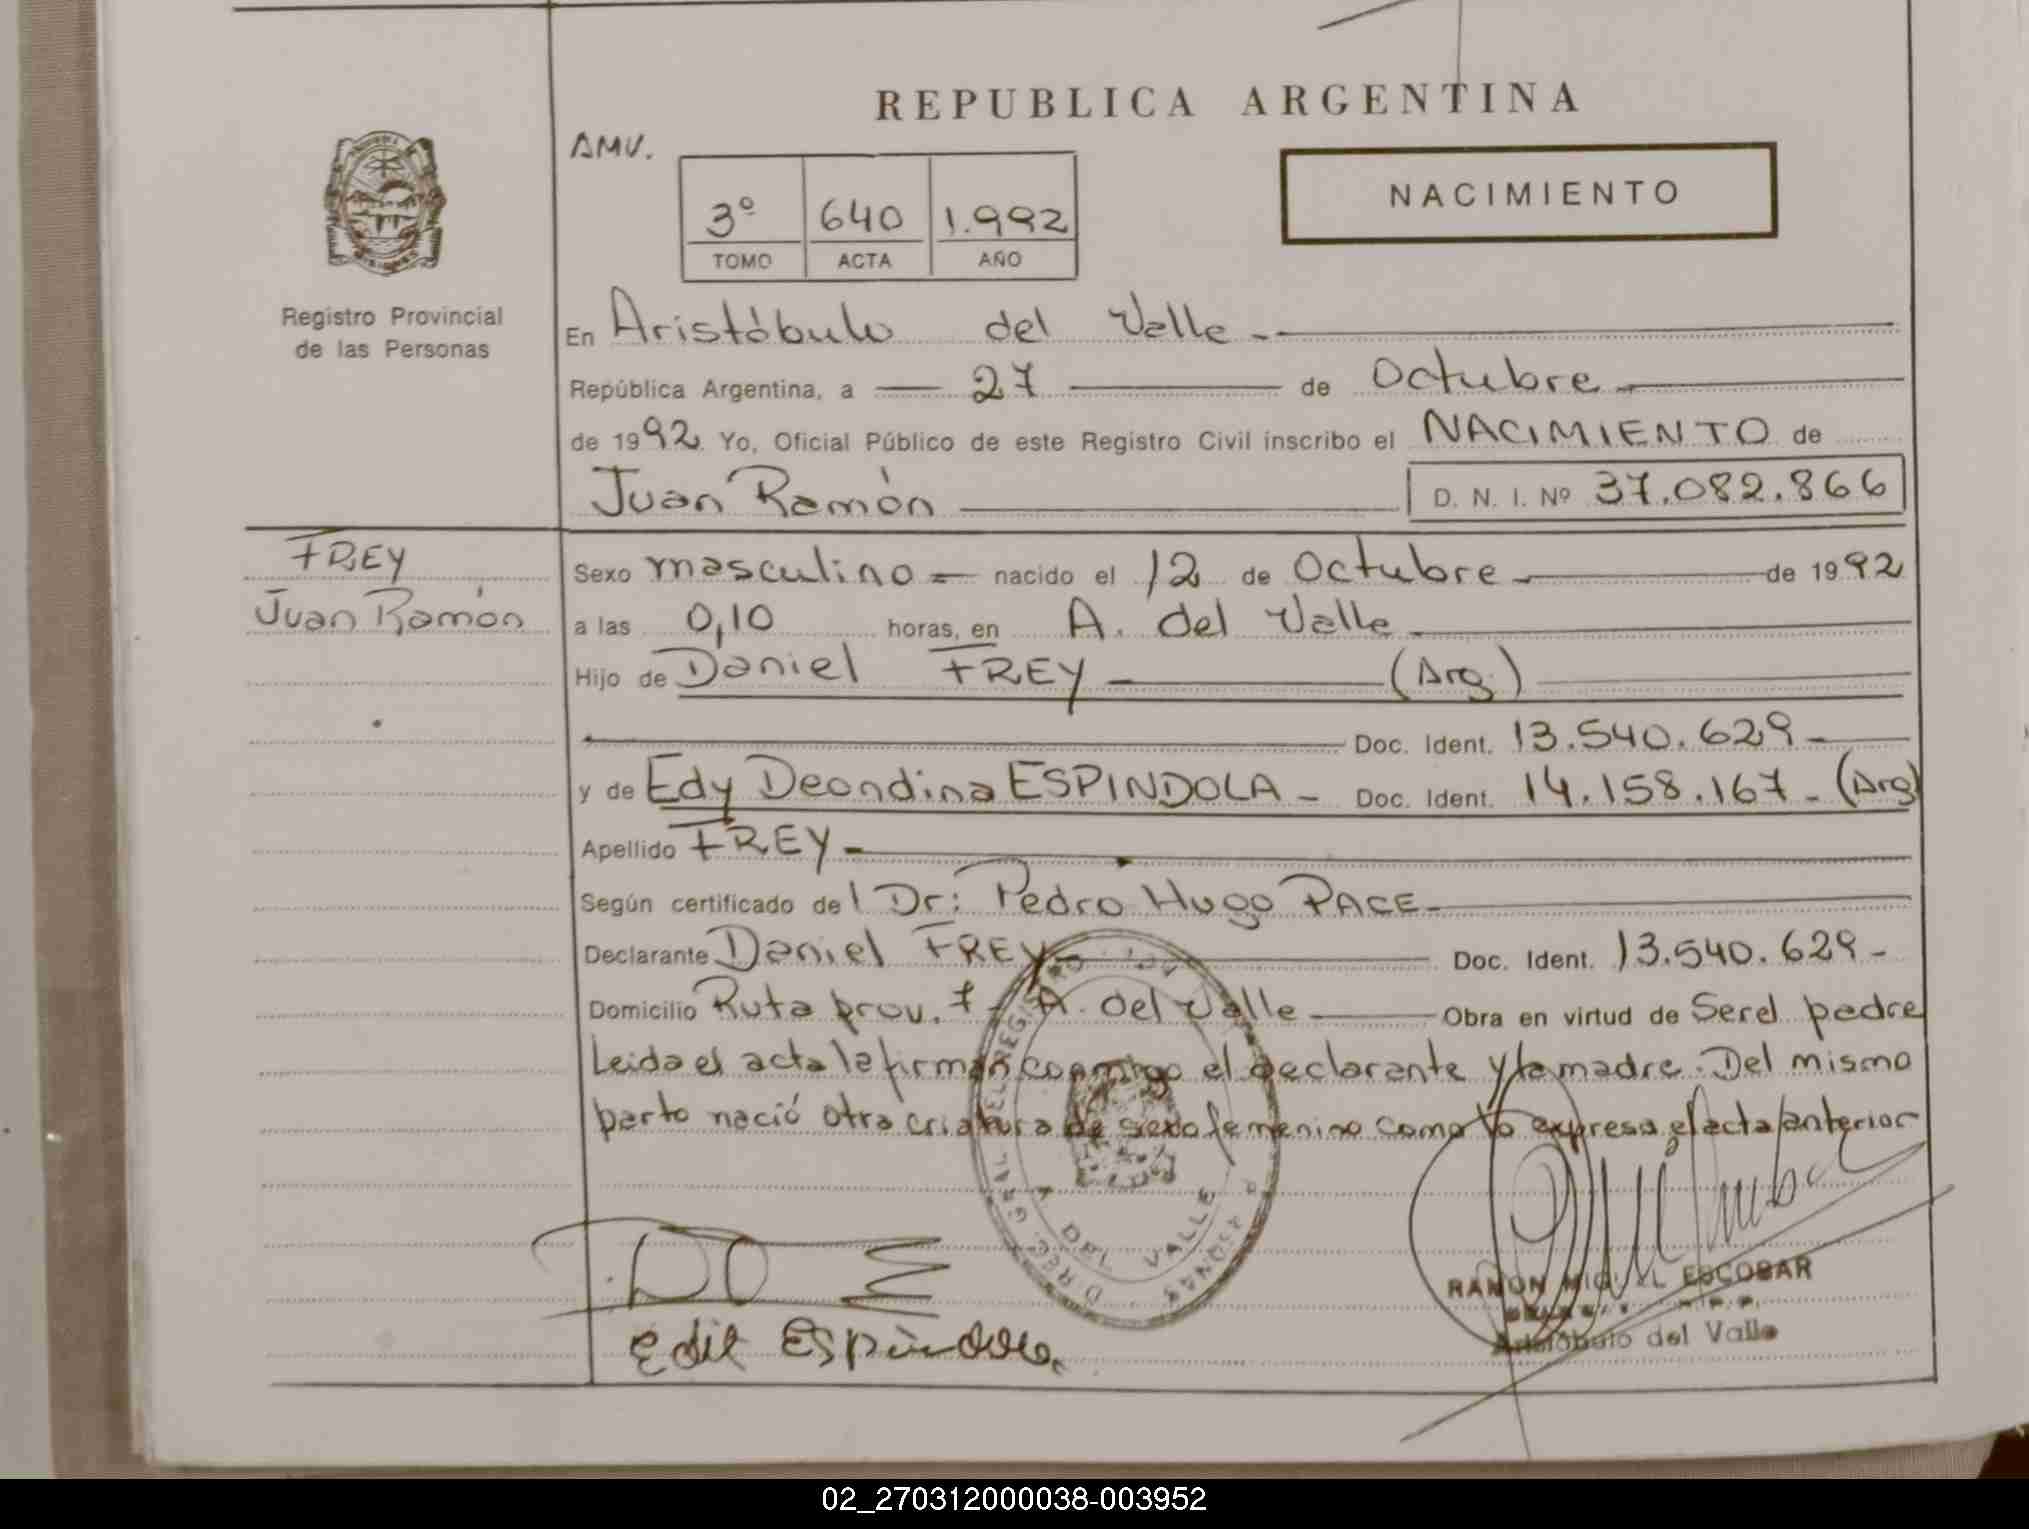 REPUBLICA ARGENTINA
AMV.
NACIMIENTO
3º 640 1.992
TOMO ACTA AÑO
Registro Provincial
de las Personas
En Aristóbulo del Valle
República Argentina, a 27 de Octubre
de 1992. Yo, Oficial Público de este Registro Civil inscribo el NACIMIENTO de
Juan Ramón D. N. I. Nº 37.082.866
FREY
Juan Ramón
Sexo masculino = nacido el 12 de Octubre de 1992
a las 0,10 horas, en A. del Valle
Hijo de Daniel FREY (Arg.)
Doc. Ident. 13.540.629
y de Edy Deondina ESPINDOLA - Doc. Ident. 14.158.167 - (Arg)
Apellido FREY
Según certificado del Dr: Pedro Hugo PACE
Declarante Daniel FREY Doc. Ident. 13.540.629 -
Domicilio Ruta prov. 7 - A. del Valle Obra en virtud de Ser el padre
Leida el acta la firman conmigo el declarante y la madre. Del mismo
parto nació otra criatura de sexo femenino como lo expresa el acta anterior
DIREC. GRAL. DEL REGISTRO
PERSONAS
DEL VALLE
Edit Espindola
RAMON MIGUEL ESCOBAR
Aristóbulo del Valle
02_270312000038-003952